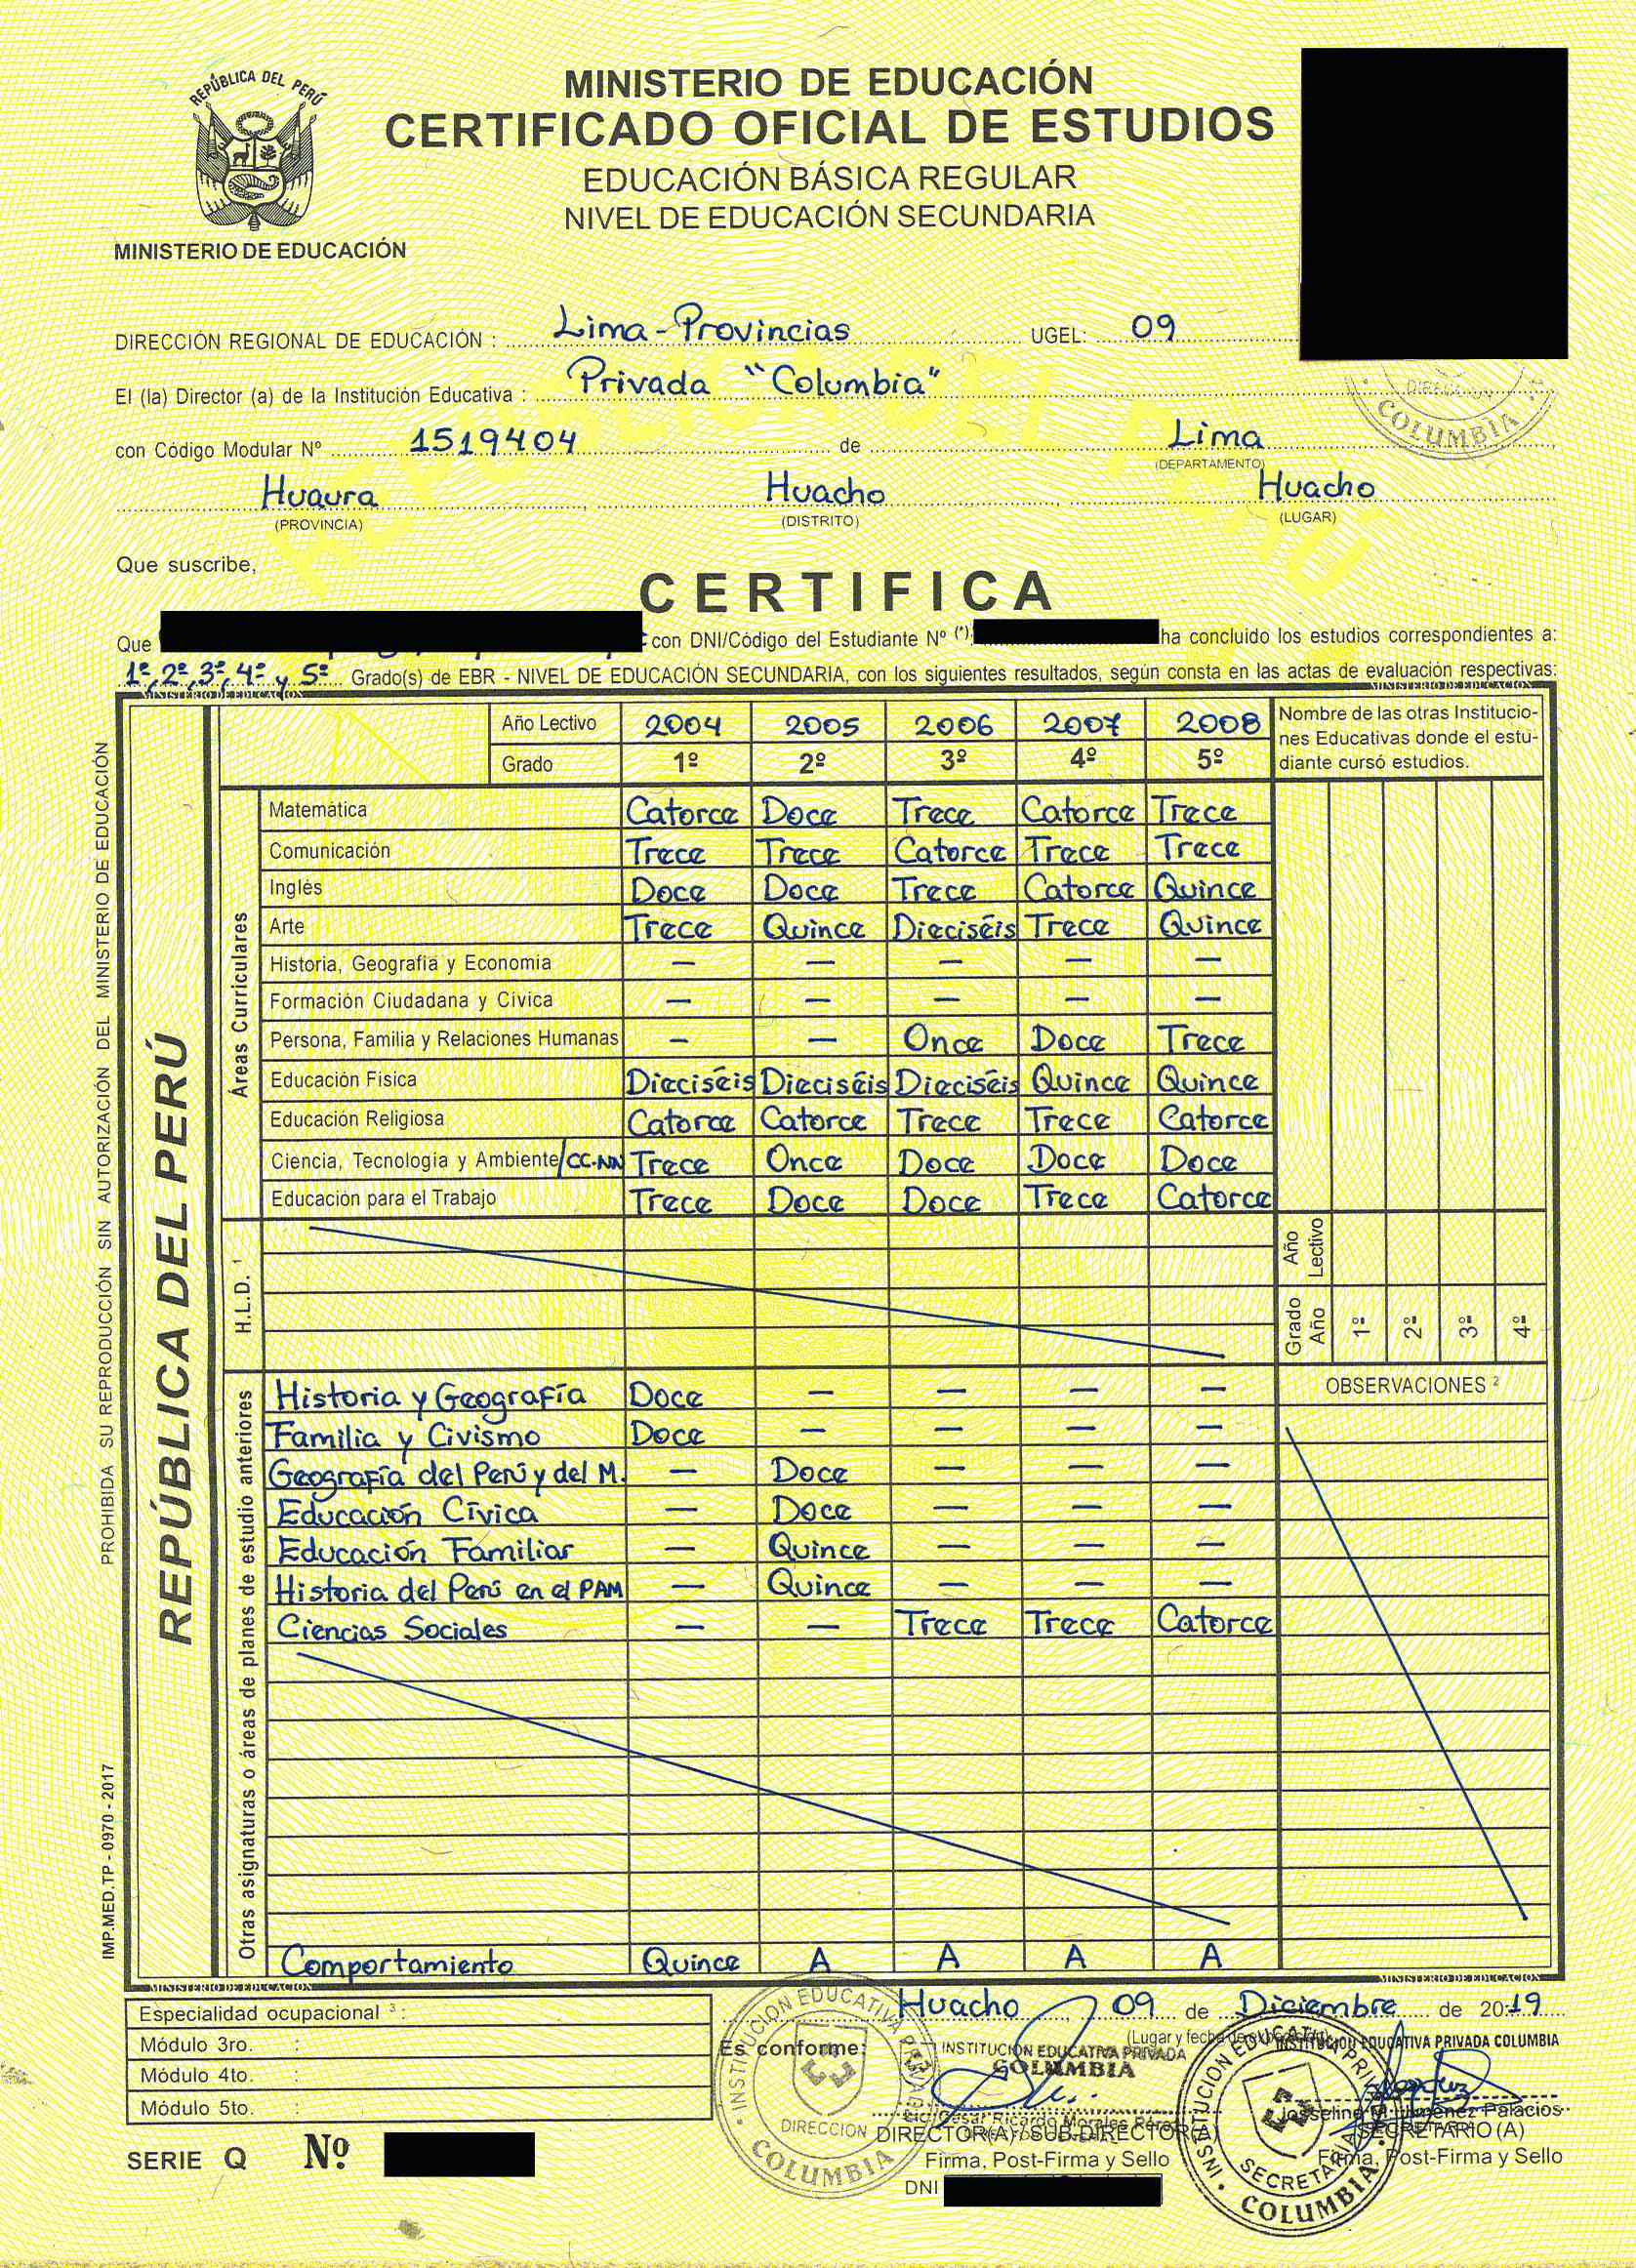 REPÚBLICA DEL PERÚ
MINISTERIO DE EDUCACIÓN
MINISTERIO DE EDUCACIÓN
CERTIFICADO OFICIAL DE ESTUDIOS
EDUCACIÓN BÁSICA REGULAR
NIVEL DE EDUCACIÓN SECUNDARIA
DIRECCIÓN REGIONAL DE EDUCACIÓN : Lima-Provincias UGEL: 09
El (la) Director (a) de la Institución Educativa : Privada "Columbia"
DIRECCION COLUMBIA
con Código Modular Nº 1519404 de Lima
(DEPARTAMENTO)
Huaura Huacho Huacho
(PROVINCIA) (DISTRITO) (LUGAR)
Que suscribe,
CERTIFICA
Que con DNI/Código del Estudiante Nº (*): ha concluido los estudios correspondientes a:
1º, 2º, 3º, 4º y 5º Grado(s) de EBR - NIVEL DE EDUCACIÓN SECUNDARIA, con los siguientes resultados, según consta en las actas de evaluación respectivas:
MINISTERIO DE EDUCACIÓN MINISTERIO DE EDUCACIÓN
Año Lectivo 2004 2005 2006 2007 2008
Grado 1º 2º 3º 4º 5º
Nombre de las otras Institucio-
nes Educativas donde el estu-
diante cursó estudios.
Áreas Curriculares
Matemática Catorce Doce Trece Catorce Trece
Comunicación Trece Trece Catorce Trece Trece
Inglés Doce Doce Trece Catorce Quince
Arte Trece Quince Dieciséis Trece Quince
Historia, Geografía y Economía — — — — —
Formación Ciudadana y Cívica — — — — —
Persona, Familia y Relaciones Humanas — — Once Doce Trece
Educación Física Dieciséis Dieciséis Dieciséis Quince Quince
Educación Religiosa Catorce Catorce Trece Trece Catorce
Ciencia, Tecnología y Ambiente/CC.NN Trece Once Doce Doce Doce
Educación para el Trabajo Trece Doce Doce Trece Catorce
H.L.D. 1
Año Lectivo
Grado Año 1º 2º 3º 4º
OBSERVACIONES 2
Otras asignaturas o áreas de planes de estudio anteriores
Historia y Geografía Doce — — — —
Familia y Civismo Doce — — — —
Geografía del Perú y del M. — Doce — — —
Educación Cívica — Doce — — —
Educación Familiar — Quince — — —
Historia del Perú en el PAM — Quince — — —
Ciencias Sociales — — Trece Trece Catorce
Comportamiento Quince A A A A
MINISTERIO DE EDUCACIÓN MINISTERIO DE EDUCACIÓN
REPÚBLICA DEL PERÚ
PROHIBIDA SU REPRODUCCIÓN SIN AUTORIZACIÓN DEL MINISTERIO DE EDUCACIÓN
IMP.MED.TP - 0970 - 2017
Especialidad ocupacional 3 :
Módulo 3ro. :
Módulo 4to. :
Módulo 5to. :
SERIE Q Nº
Huacho, 09 de Diciembre de 2019
(Lugar y fecha de expedición)
Es conforme:
INSTITUCION EDUCATIVA PRIVADA
DIRECCION
COLUMBIA
INSTITUCIÓN EDUCATIVA PRIVADA
COLUMBIA
Cesar Ricardo Morales Perez
DIRECTOR(A) / SUB-DIRECTOR(A)
Firma, Post-Firma y Sello
DNI
INSTITUCION EDUCATIVA PRIVADA
SECRETARIA
COLUMBIA
INSTITUCIÓN EDUCATIVA PRIVADA COLUMBIA
Jimenez Palacios
SECRETARIO (A)
Firma, Post-Firma y Sello